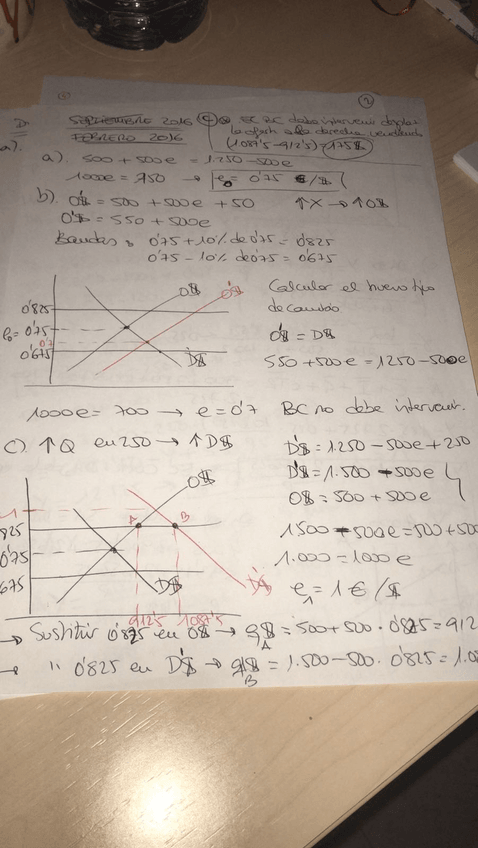 2
D.
SEPTIEMBRE 2016
FEBRERO 2016
a).
④ EL BC debe intervenir
la oferta a la derecha vendiendo
(1087'5-912'5)=175$
a). 500 + 500e = 1.250 - 500e
1000e = 750 → e₀ = 0'75 €/$
b). O'$ = 500 + 500e + 50 ↑X → ↑O$
O'$ = 550 + 500e
Bandas: 0'75 + 10% de 0'75 = 0'825
0'75 - 10% de 0'75 = 0'675
O$
O'$
0'825
e₀ = 0'75
0'7
0'675
D$
Calcular el nuevo tipo
de cambio
O'$ = D$
550 + 500e = 1250 - 500e
1000e = 700 → e = 0'7 BC no debe intervenir.
c). ↑Q en 250 → ↑D$
D'$ = 1.250 - 500e + 250
D'$ = 1.500 - 500e
O$ = 500 + 500e
1500 - 500e = 500 + 500
1.000 = 1000e
e₁ = 1 €/$
O$
1
A
B
825
0'75
675
D$
D'$
912'5
1087'5
→ Sustituir 0'825 en O$ → q$A = 500 + 500 · 0'825 = 912
→ " 0'825 en D'$ → q$B = 1.500 - 500 · 0'825 = 1.08